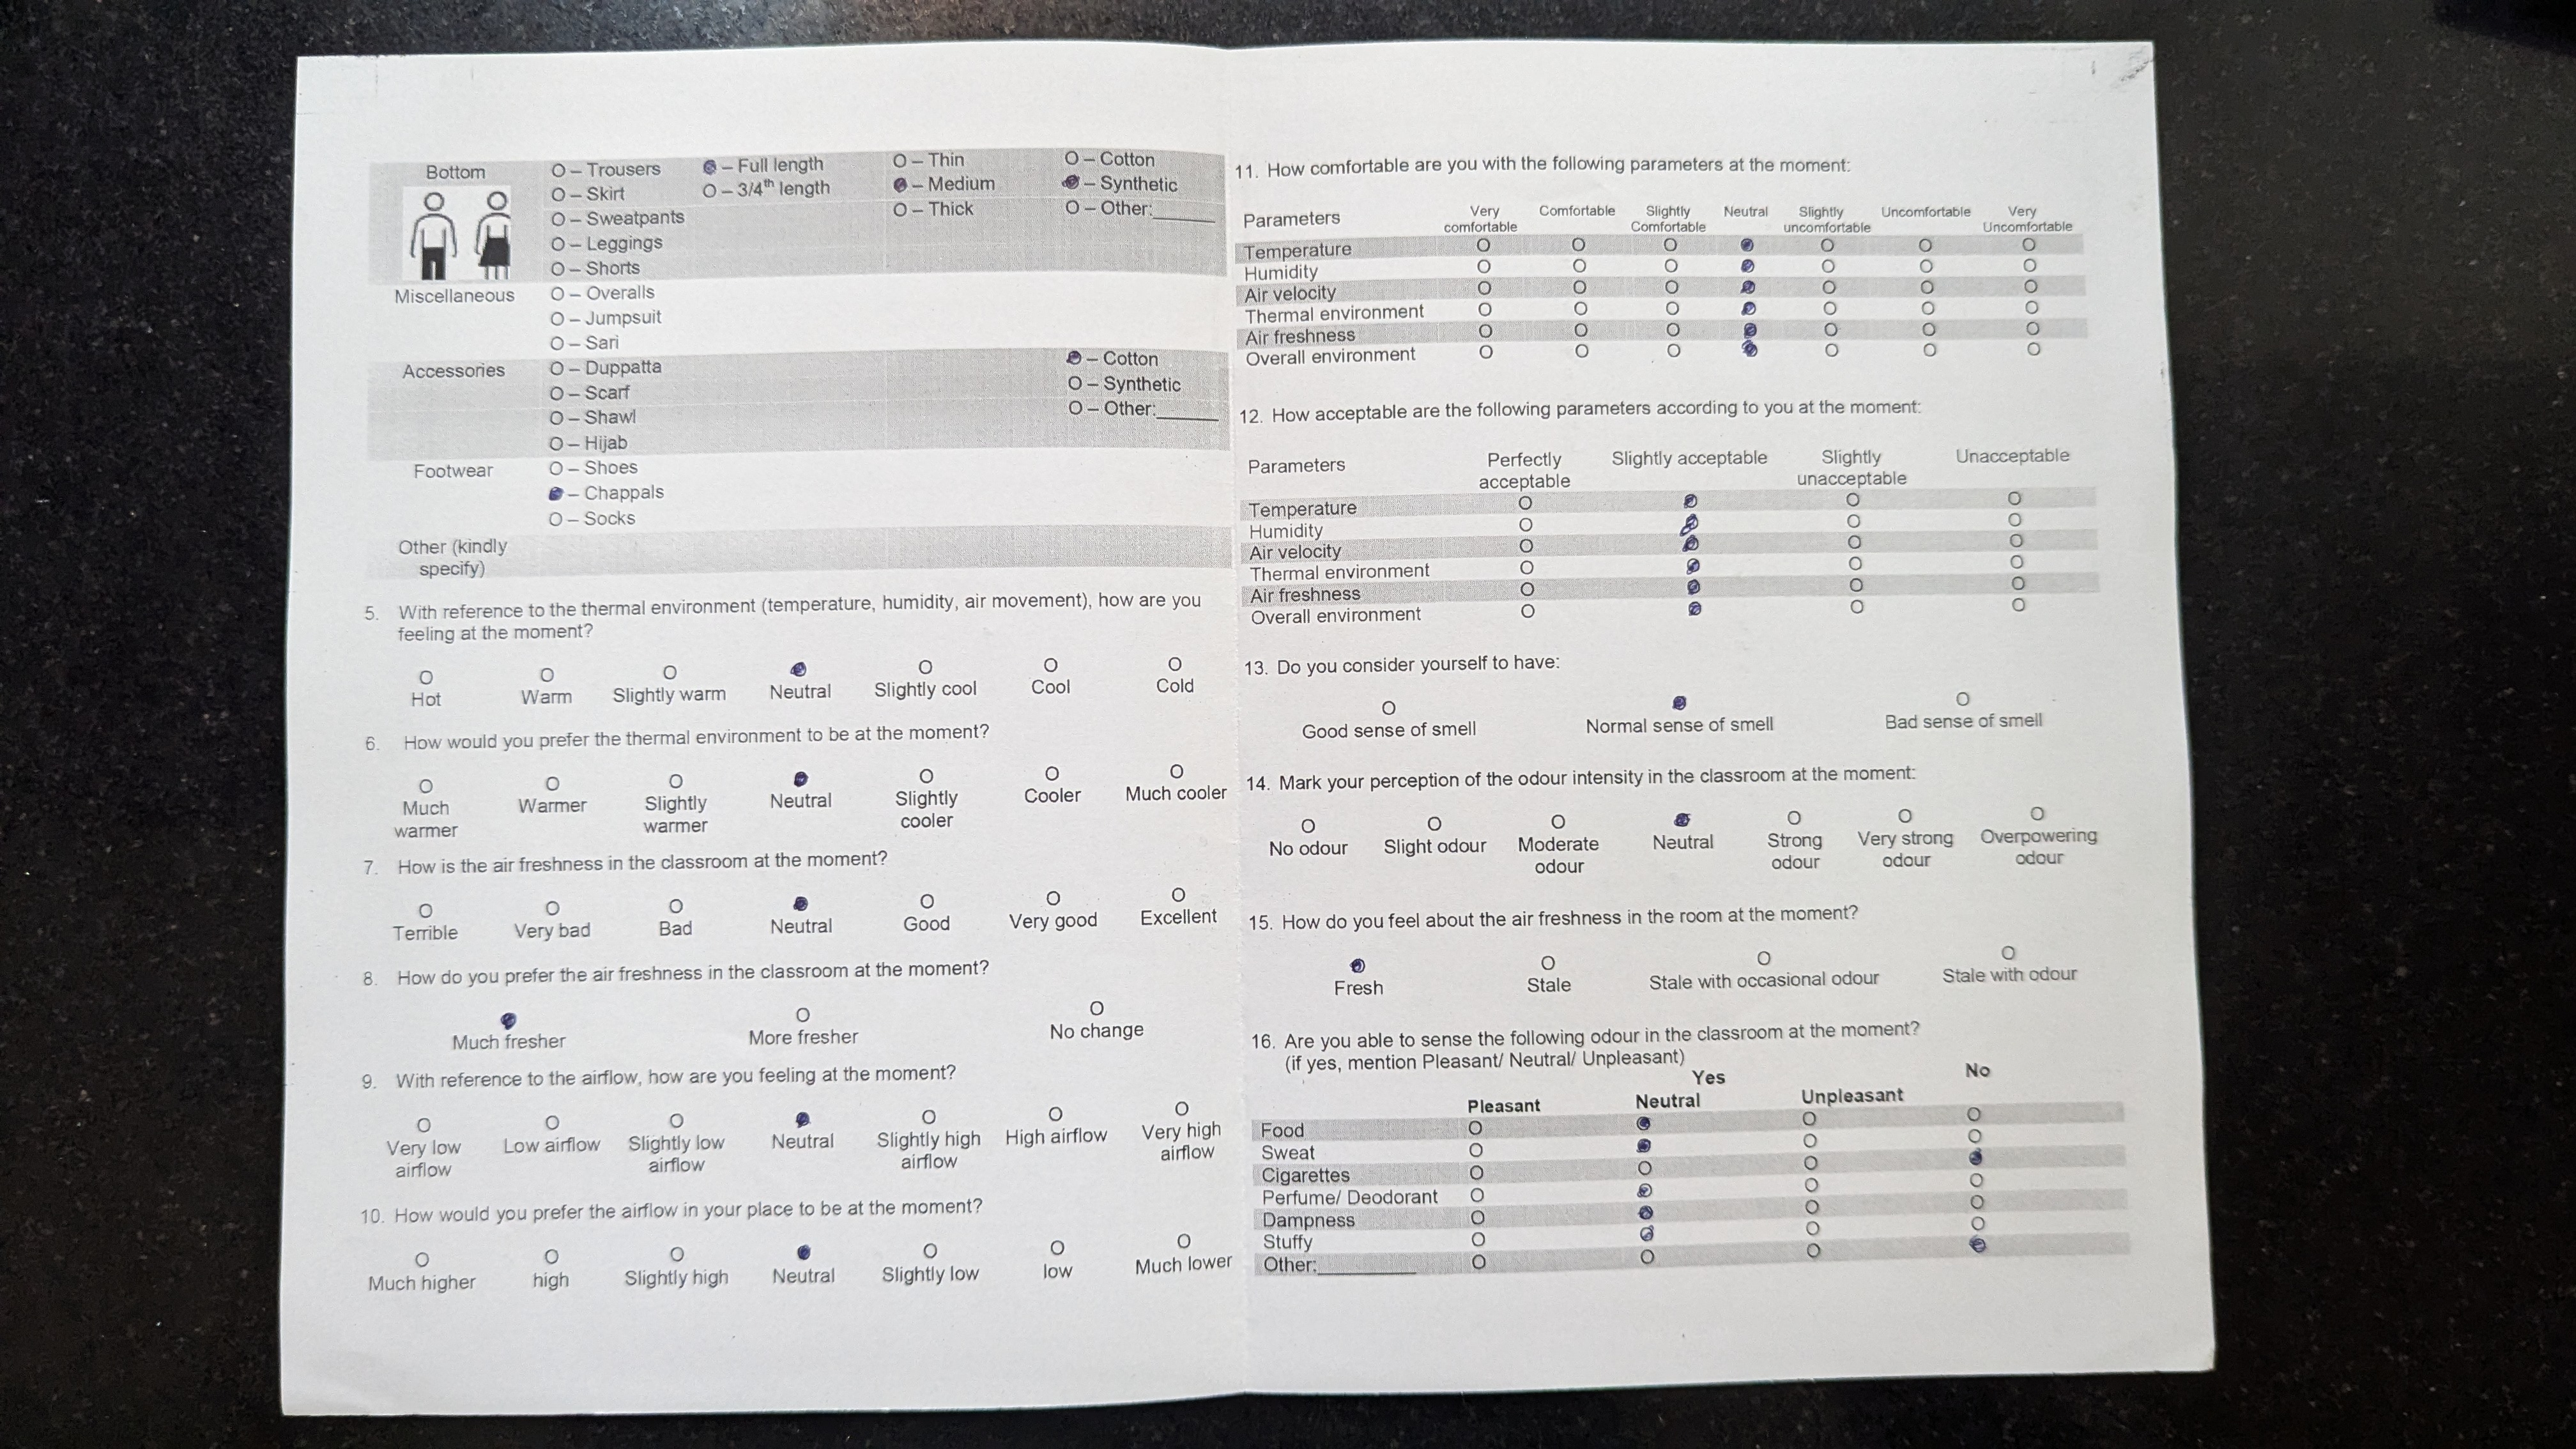 Bottom
O – Trousers
O – Skirt
O – Sweatpants
O – Leggings
O – Shorts
– Full length
O – 3/4th length
O – Thin
– Medium
O – Thick
O – Cotton
– Synthetic
O – Other:______
Miscellaneous
O – Overalls
O – Jumpsuit
O – Sari
Accessories
O – Duppatta
O – Scarf
O – Shawl
O – Hijab
– Cotton
O – Synthetic
O – Other:______
Footwear
O – Shoes
– Chappals
O – Socks
Other (kindly
specify)
5. With reference to the thermal environment (temperature, humidity, air movement), how are you
feeling at the moment?
Hot Warm Slightly warm Neutral Slightly cool Cool Cold
6. How would you prefer the thermal environment to be at the moment?
Much warmer Warmer Slightly warmer Neutral Slightly cooler Cooler Much cooler
7. How is the air freshness in the classroom at the moment?
Terrible Very bad Bad Neutral Good Very good Excellent
8. How do you prefer the air freshness in the classroom at the moment?
Much fresher More fresher No change
9. With reference to the airflow, how are you feeling at the moment?
Very low airflow Low airflow Slightly low airflow Neutral Slightly high airflow High airflow Very high airflow
10. How would you prefer the airflow in your place to be at the moment?
Much higher high Slightly high Neutral Slightly low low Much lower
11. How comfortable are you with the following parameters at the moment:
Parameters Very comfortable Comfortable Slightly Comfortable Neutral Slightly uncomfortable Uncomfortable Very Uncomfortable
Temperature
Humidity
Air velocity
Thermal environment
Air freshness
Overall environment
12. How acceptable are the following parameters according to you at the moment:
Parameters Perfectly acceptable Slightly acceptable Slightly unacceptable Unacceptable
Temperature
Humidity
Air velocity
Thermal environment
Air freshness
Overall environment
13. Do you consider yourself to have:
Good sense of smell Normal sense of smell Bad sense of smell
14. Mark your perception of the odour intensity in the classroom at the moment:
No odour Slight odour Moderate odour Neutral Strong odour Very strong odour Overpowering odour
15. How do you feel about the air freshness in the room at the moment?
Fresh Stale Stale with occasional odour Stale with odour
16. Are you able to sense the following odour in the classroom at the moment?
(if yes, mention Pleasant/ Neutral/ Unpleasant)
Yes No
Pleasant Neutral Unpleasant
Food
Sweat
Cigarettes
Perfume/ Deodorant
Dampness
Stuffy
Other:__________